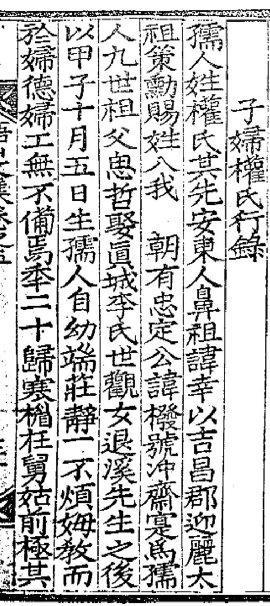 子婦權氏行錄
孺人姓權氏其先安東人鼻祖諱幸以吉昌郡迎麗太
祖策勳賜姓入我 朝有忠定公諱橃號沖齋寔爲孺
人九世祖父思哲娶眞城李氏世觀女退溪先生之後
以甲子十月五日生孺人自幼端莊靜一不煩姆敎而
於婦德婦工無不備焉年二十歸寒楣在舅姑前極其